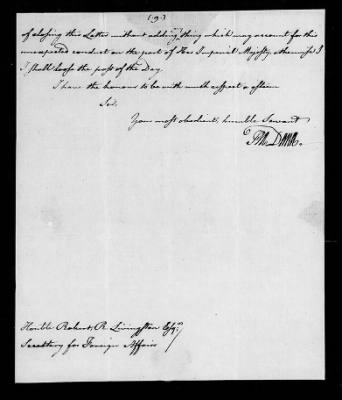 (9.)
of closing this Letter without adding thing which may account for this
unexpected conduct on the part of Her Imperial Majesty, otherwise I
I shall loose the post of the Day.
I have the honour to be with much respect & esteem
Sir,
Your most obedient, humble Servant
FRA. DANA.
Honble Robert R. Livingston Esqr.
Secretary for Foreign Affairs